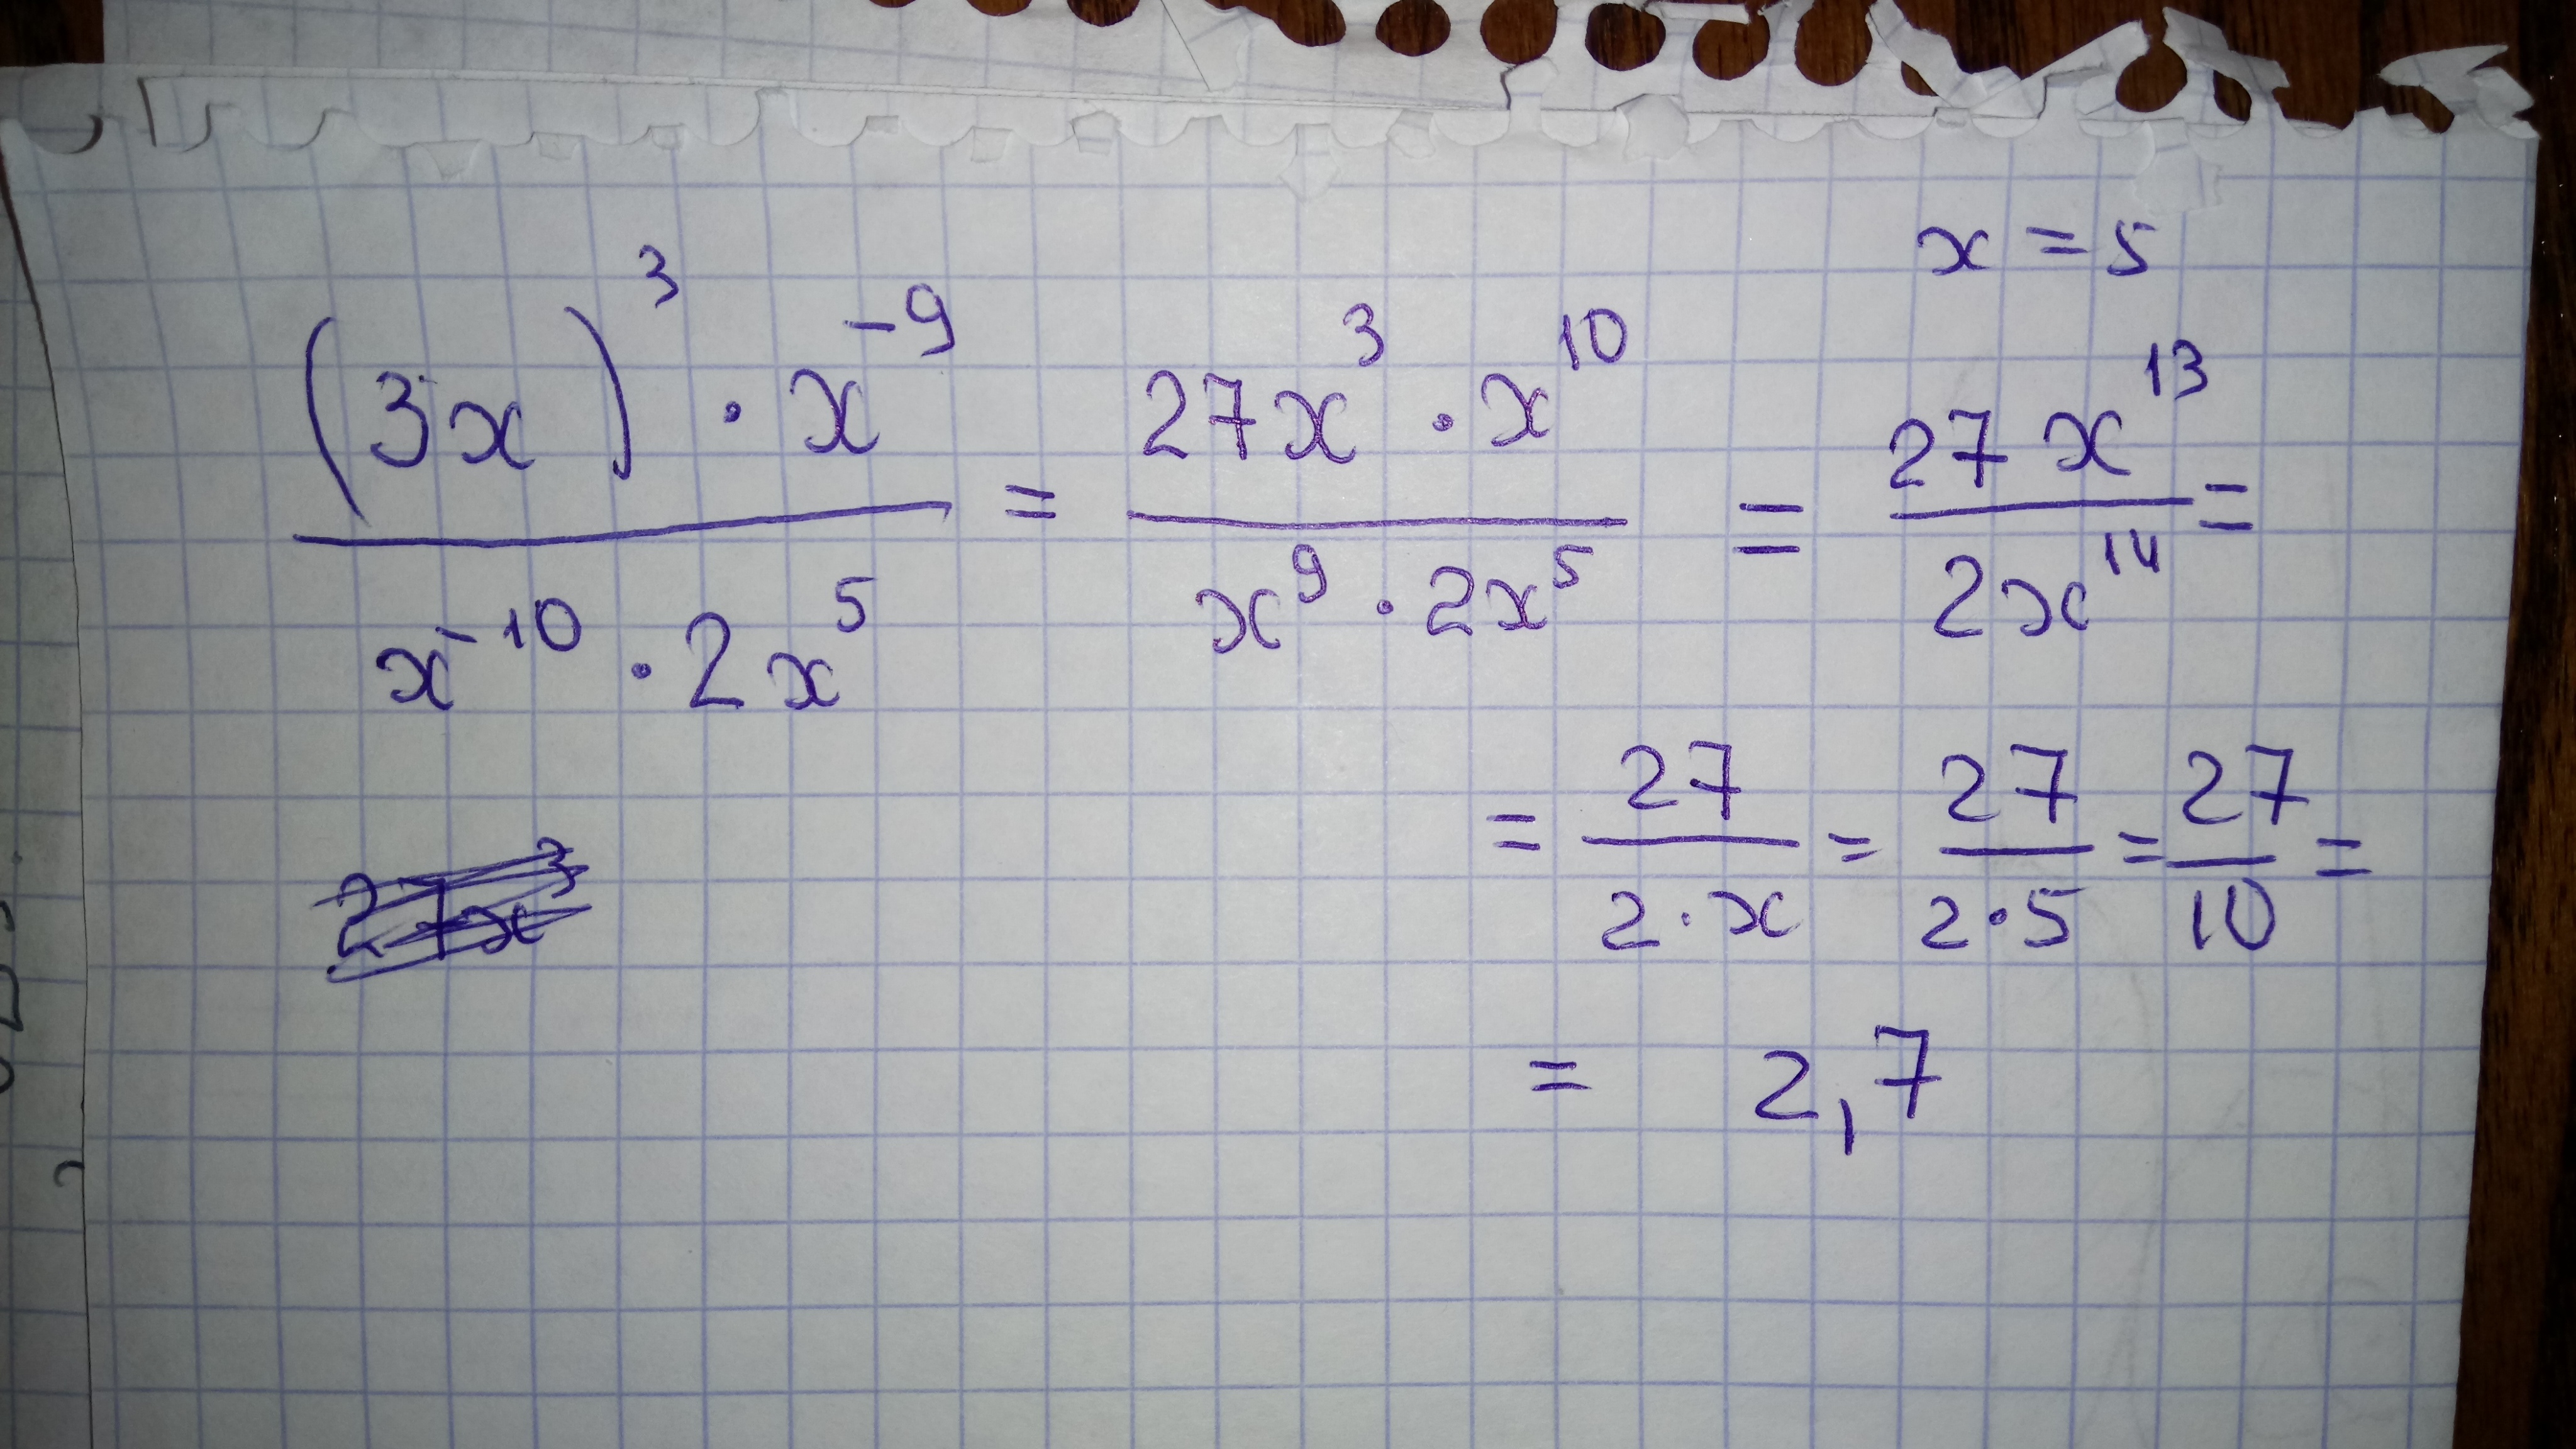 x = 5
(3x)³ · x⁻⁹ / x⁻¹⁰ · 2x⁵ = 27x³ · x¹⁰ / x⁹ · 2x⁵ = 27x¹³ / 2x¹⁴ =
= 27 / 2·x = 27 / 2·5 = 27 / 10 =
= 2,7